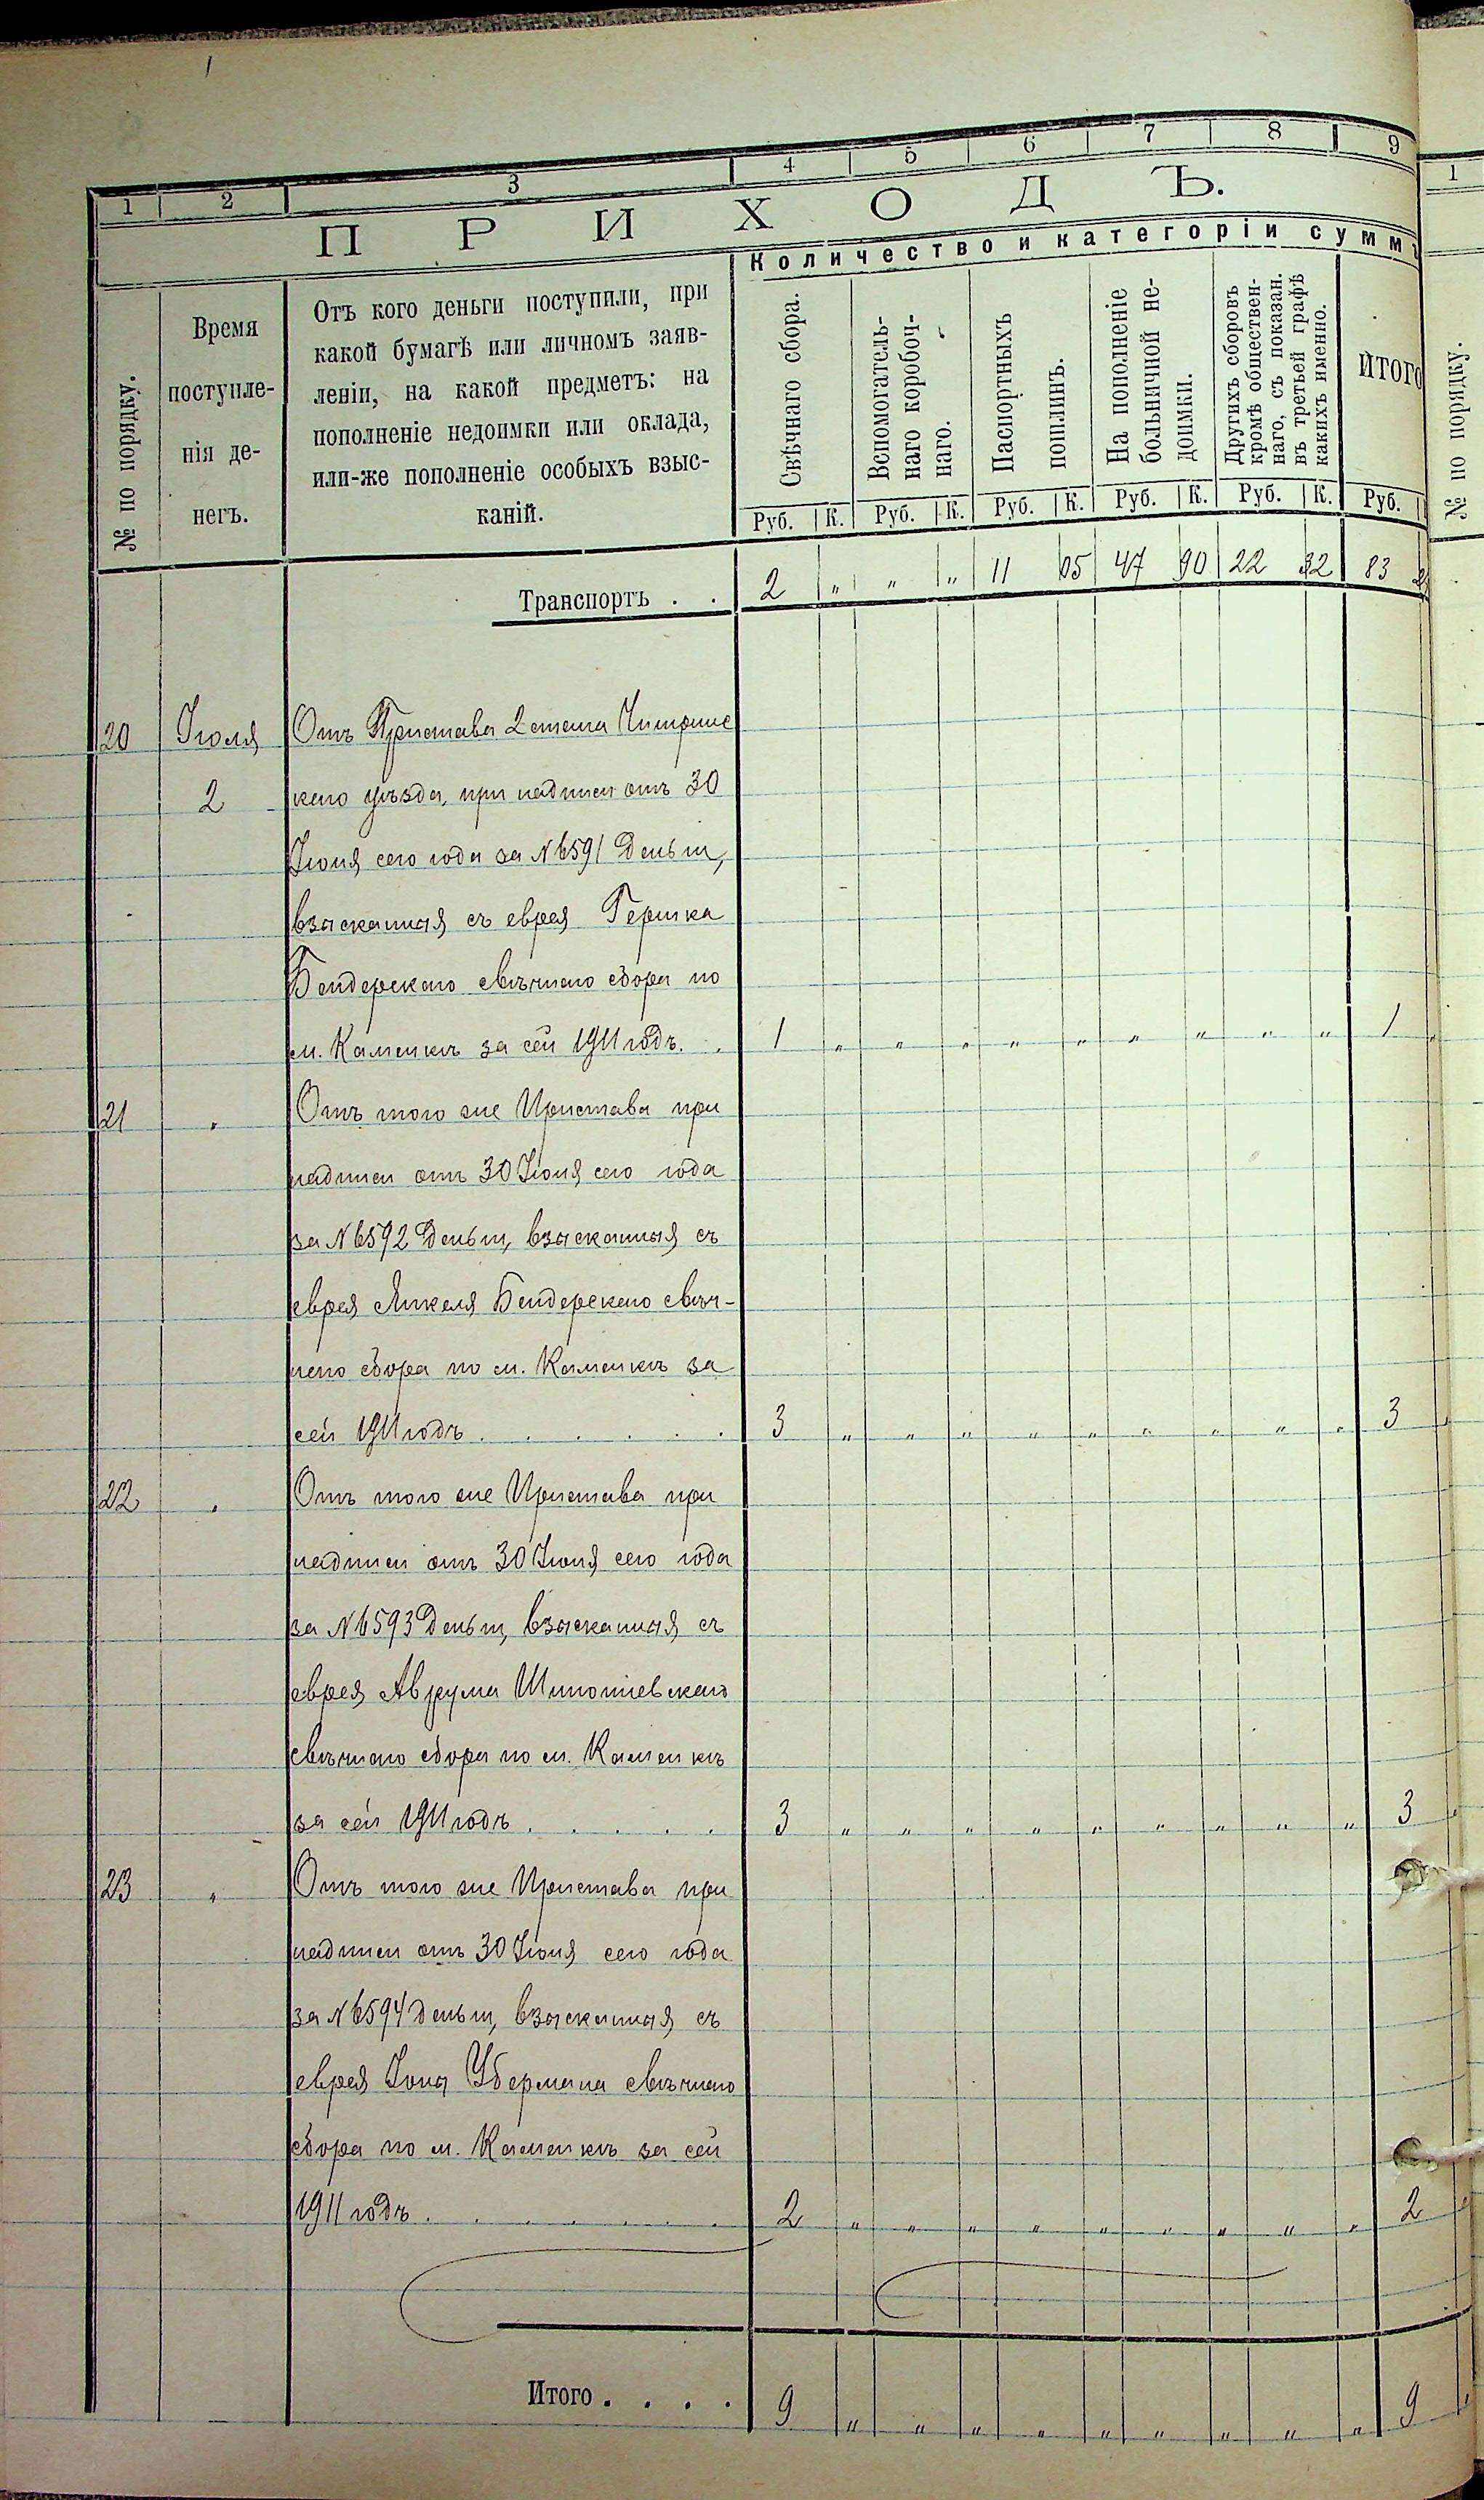 1 2 3 4 5 6 7 8 9
ПРИХОДЪ.
Количество и категоріи суммъ
№ по порядку.
Время
поступле-
нія де-
негъ.
Отъ кого деньги поступили, при
какой бумагѣ или личномъ заяв-
леніи, на какой предметъ: на
пополненіе недоимки или оклада,
или-же пополненіе особыхъ взыс-
каній.
Свѣчнаго сбора.
Вспомогатель-
наго коробоч-
наго.
Паспортныхъ
пошлинъ.
На пополненіе
больничной не-
доимки.
Другихъ сборовъ
кромѣ обществен-
наго, съ показан.
въ третьей графѣ
какихъ именно.
ИТОГО
Руб. К. Руб. К. Руб. К. Руб. К. Руб. К. Руб.
Транспортъ . . 2 " " " 11 05 47 90 22 32 83
20 Іюля Отъ Пристава 2 стана Чигринс
2 каго уѣзда, при надписи отъ 30
Іюня сего года за № 6591 деньги,
взысканныя съ еврея Гершка
Бендерскаго свѣчнаго сбора по
м. Каменкѣ за сей 1911 годъ. . 1 " " " " " " " " " 1 "
21 " Отъ того же Пристава при
надписи отъ 30 Іюня сего года
за № 6592 деньги, взысканныя съ
еврея Янкеля Бендерскаго свѣч-
наго сбора по м. Каменкѣ за
сей 1911 годъ . . . . . . 3 " " " " " " " " " 3 "
22 " Отъ того же Пристава при
надписи отъ 30 Іюня сего года
за № 6593 деньги, взысканныя съ
еврея Аврума
свѣчнаго сбора по м. Каменкѣ
за сей 1911 годъ . . . . . 3 " " " " " " " " " 3 "
23 " Отъ того же Пристава при
надписи отъ 30 Іюня сего года
за № 6594 деньги, взысканныя съ
еврея Іона Убермана свѣчнаго
сбора по м. Каменкѣ за сей
1911 годъ . . . . . . . 2 " " " " " " " " " 2 "
Итого . . . . 9 " " " " " " " " " 9 "
1
№ по порядку.